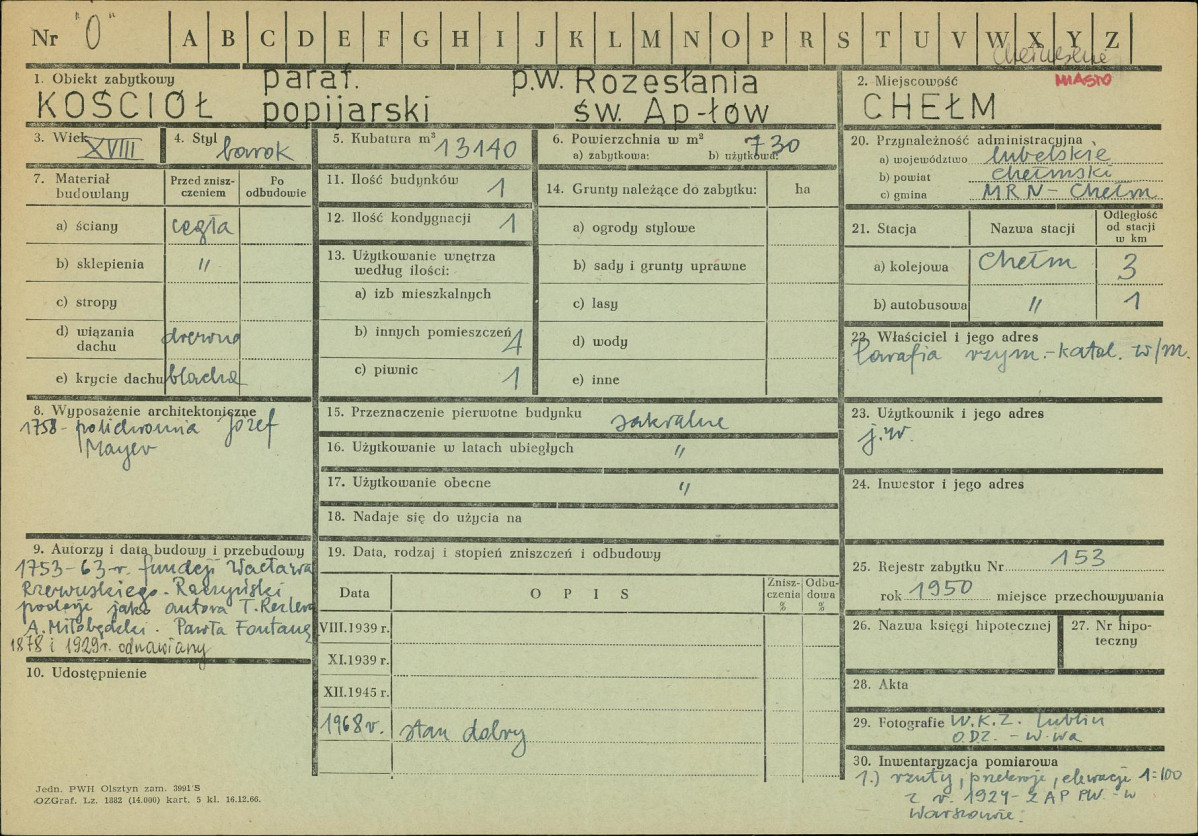 Nr "0" A B C D E F G H I J K L M N O P R S T U V W X Y Z
1. Obiekt zabytkowy
KOŚCIÓŁ paraf. popijarski p.w. Rozesłania św. Ap-łów
2. Miejscowość
MIASTO
CHEŁM
3. Wiek XVIII
4. Styl barok
5. Kubatura m³ 13140
6. Powierzchnia w m² 730
a) zabytkowa: b) użytkowa:
7. Materiał budowlany
Przed zniszczeniem
Po odbudowie
a) ściany cegła
b) sklepienia "
c) stropy
d) wiązania dachu drewno
e) krycie dachu blacha
8. Wyposażenie architektoniczne
1758 - polichromia Józef
Mayer
9. Autorzy i data budowy i przebudowy
1753-63 r. fundacji Wacława
Rzewuskiego. Raczyński
podaje jako autora T. Rezlera
A. Miłobędzki. Pawła Fontanę
1878 i 1929 r. odnawiany
10. Udostępnienie
11. Ilość budynków 1
12. Ilość kondygnacji 1
13. Użytkowanie wnętrza według ilości:
a) izb mieszkalnych
b) innych pomieszczeń 4
c) piwnic 1
14. Grunty należące do zabytku: ha
a) ogrody stylowe
b) sady i grunty uprawne
c) lasy
d) wody
e) inne
15. Przeznaczenie pierwotne budynku sakralne
16. Użytkowanie w latach ubiegłych "
17. Użytkowanie obecne "
18. Nadaje się do użycia na
19. Data, rodzaj i stopień zniszczeń i odbudowy
Data
O P I S
Zniszczenia %
Odbudowa %
VIII.1939 r.
XI.1939 r.
XII.1945 r.
1968 r. stan dobry
20. Przynależność administracyjna
a) województwo lubelskie
b) powiat chełmski
c) gmina MRN - Chełm
21. Stacja
Nazwa stacji
Odległość od stacji w km
a) kolejowa Chełm 3
b) autobusowa " 1
22. Właściciel i jego adres
Parafia rzym.-katol. w/m.
23. Użytkownik i jego adres
j.w.
24. Inwestor i jego adres
25. Rejestr zabytku Nr 153
rok 1950 miejsce przechowywania
26. Nazwa księgi hipotecznej
27. Nr hipoteczny
28. Akta
29. Fotografie W.K.Z. Lublin
O.D.Z. - W-wa
30. Inwentaryzacja pomiarowa
1.) rzuty, przekroje, elewacje 1=100
z r. 1924 - ZAP PW. - w
Warszawie.
Jedn. PWH Olsztyn zam. 3991/S
OZGraf. Lz. 1882 (14.000) kart. 5 kl. 16.12.66.